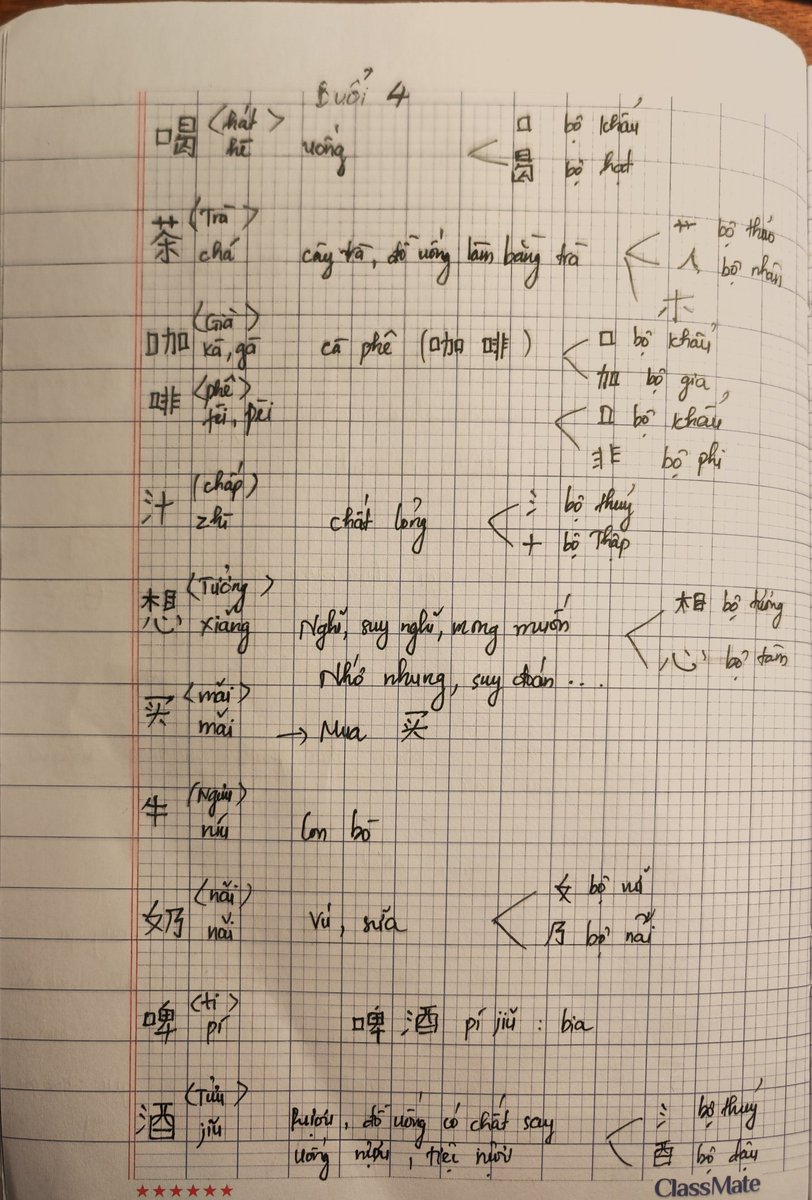 Buổi 4
喝 <hát> hē uống 口 bộ khẩu
曷 bộ hạt
茶 (Trà) chá cây trà, đồ uống làm bằng trà 艹 bộ thảo
人 bộ nhân
木
咖 (Già) kā, gā cà phê (咖啡) 口 bộ khẩu
加 bộ gia
啡 <phê> fēi, pēi 口 bộ khẩu
非 bộ phi
汁 (chấp) zhī chất lỏng 氵 bộ thuỷ
十 bộ Thập
想 (Tưởng) xiǎng Nghĩ, suy nghĩ, mong muốn 相 bộ tướng
Nhớ nhung, suy đoán .... 心 bộ tâm
买 (mãi) mǎi → Mua 买
牛 (Ngưu) níu Con bò
奶 (nãi) nǎi Vú, sữa 女 bộ nữ
乃 bộ nãi
啤 (ti) pí 啤酒 pí jiǔ : bia
酒 (Tửu) jiǔ Rượu, đồ uống có chất say 氵 bộ thuỷ
uống rượu, tiệc rượu 酉 bộ dậu
ClassMate